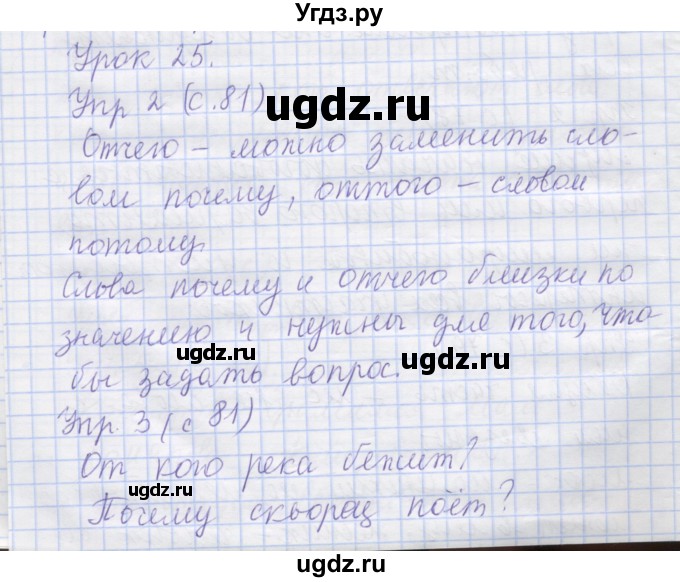 Угдз.ру
Урок 25.
Упр 2 (с.81)
ugdz.ru
Отчего – можно заменить сло-
вом почему, оттого – словом
потому.
Слова почему и отчего близки по
значению и нужны для того, что
ugdz.ru
ugdz.ru
бы задать вопрос.
Упр. 3 (с 81)
От кого река бежит?
ugdz.ru
Почему скворец поёт?
ugdz.ru